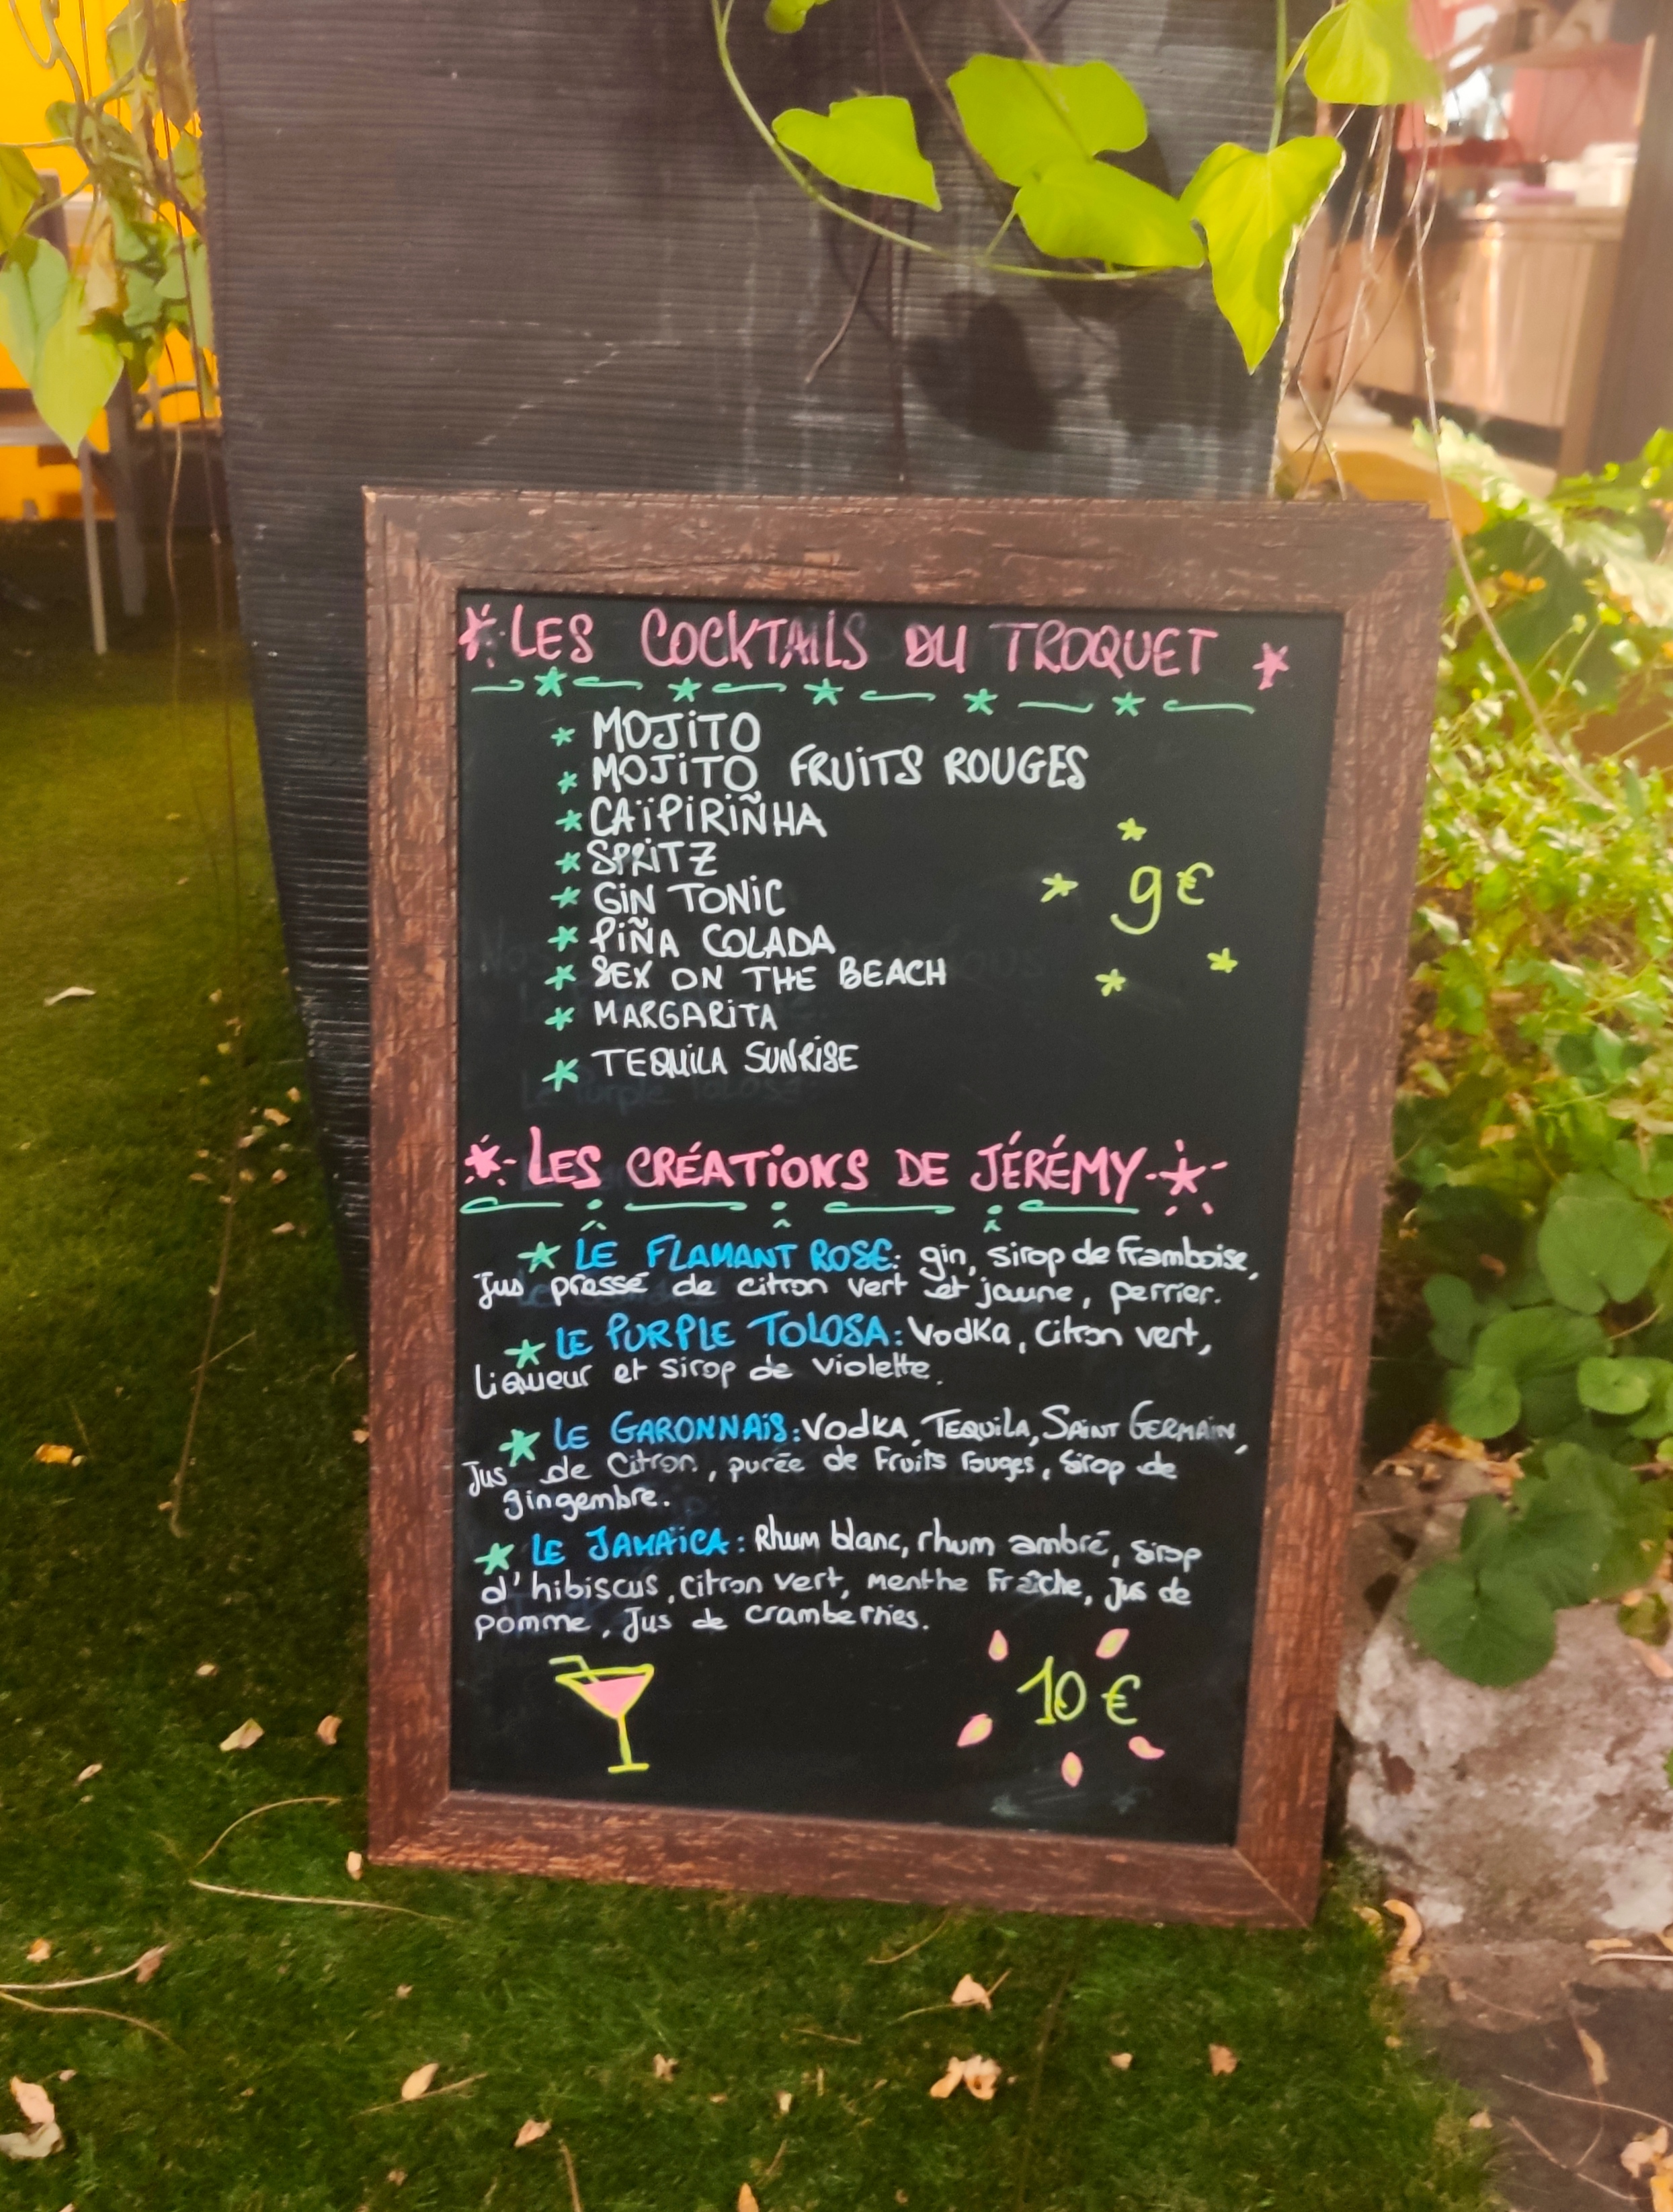 LES COCKTAILS DU TROQUET
MOJITO
MOJITO FRUITS ROUGES
CAÏPIRIÑHA
SPRITZ
GIN TONIC
PIÑA COLADA
SEX ON THE BEACH
MARGARITA
TEQUILA SUNRISE
9€
LES CRÉATIONS DE JÉRÉMY
LE FLAMANT ROSE: gin, sirop de framboise,
Jus pressé de citron vert et jaune, perrier.
LE PURPLE TOLOSA: Vodka, Citron vert,
Liqueur et sirop de violette.
LE GARONNAIS: VODKA, TEQUILA, SAINT GERMAIN,
Jus de Citron, purée de Fruits rouges, Sirop de
gingembre.
LE JAMAÏCA: Rhum blanc, rhum ambré, Sirop
d'hibiscus, Citron vert, menthe Fraîche, Jus de
pomme, Jus de cramberries.
10€